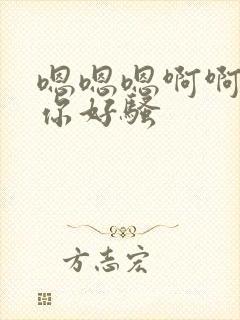 嗯嗯嗯啊啊
你好骚
方志宏